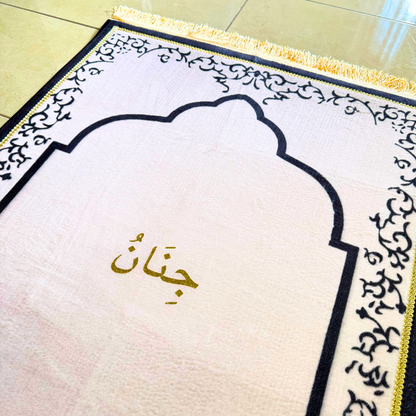 جِنَانُ